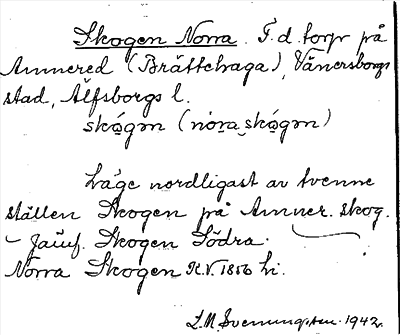 Skogen Norra. F. d. torp på
Amnered (Brättelhaga), Vänersborgs
stad, Älfsborgs l.
skǫ́gən (nòra skǫ́gən)
Läge nordligast av tvenne
ställen Skogen på Amner. skog.
– Jämf. Skogen Södra.
Norra Skogen K.V. 1856 hi.
L. M. Svenungsson. 1942.